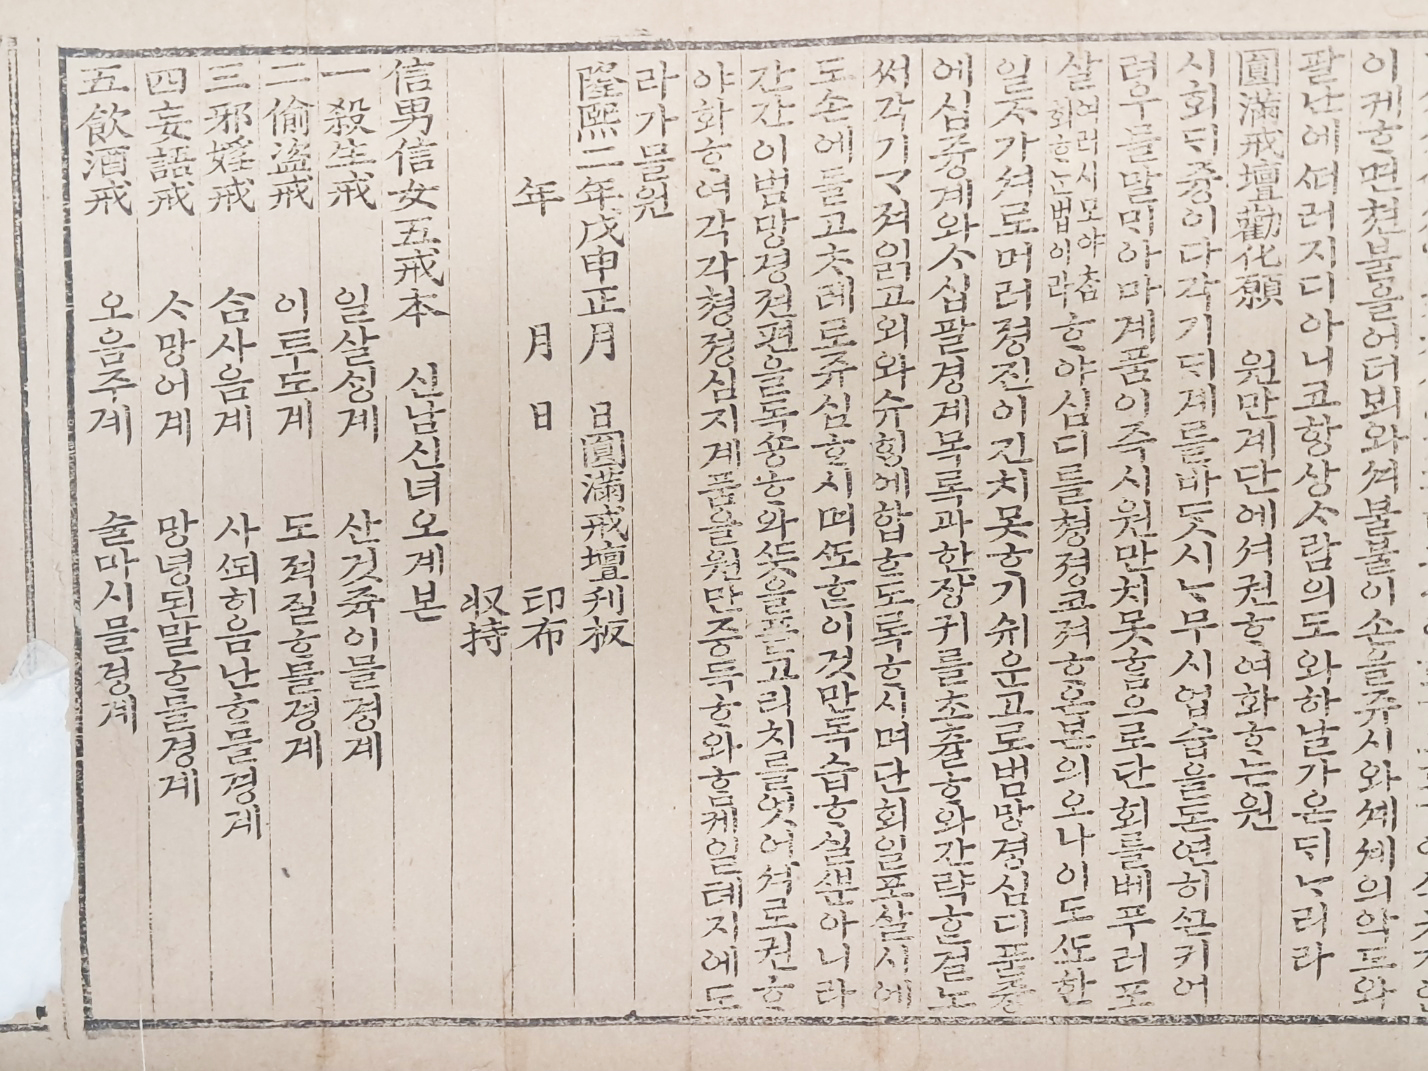 이케ᄒᆞ면쳔불을어더뵈와셔불불이손을쥬시와셰셰의악도와
팔난에ᄯᅥ러지디아니코항상ᄉᆞ람의도와하날가온ᄃᆡᄂᆞ리라
圓滿戒壇勸化願 원만계단에셔권ᄒᆞ여화ᄒᆞᄂᆞᆫ원
시회ᄃᆡ즁이다각기ᄃᆡ계를바듯시ᄂᆞ무시업습을돈연히ᄭᅳᆫ키어
려우믈말ᄆᆡ아마계품이주시원만치못ᄒᆞᆷ으로단회를베푸러포
살여러시모야춤회ᄒᆞᄂᆞᆫ법이라ᄒᆞ야심디를쳥졍코져ᄒᆞ온본의오나이도ᄯᅩ한
일ᄌᆞ가셔로머러졍진이긴치못ᄒᆞ기쉬운고로범망경심디품즁
에심즁계와ᄉᆞ십팔경계목록과한쟝귀를초츌ᄒᆞ와간략ᄒᆞᆫ결노
써각기ᄀᆞ져읽고외와슈ᄒᆡᆼ에합ᄒᆞ도록ᄒᆞ시며단회일포살시에
도손에들고ᄎᆞ례로쥬심ᄒᆞ시며ᄯᅩᄒᆞᆫ이것만독습ᄒᆞ실ᄲᅮᆫ아니라
간간이범망경젼편을독숑ᄒᆞ와ᄯᅳᆺ을플고리치를엇어셔로권ᄒᆞ
야화ᄒᆞ여각각쳥졍심지계품을원만즁득ᄒᆞ와ᄒᆞᆷ케일톄지에도
라가믈원
隆熙二年戊申正月 日圓滿戒壇刊板
年 月 日 印布
収持
信男信女五戒本 신남신녀오계본
一殺生戒 일살ᄉᆡᆼ계 산것쥭이믈경계
二偷盜戒 이투도계 도젹질ᄒᆞ믈경계
三邪婬戒 삼사음계 사ᄯᅬ히음난ᄒᆞ믈경계
四妄語戒 ᄉᆞ망어계 망녕된말ᄒᆞ믈경계
五飲酒戒 오음주계 술마시믈경계